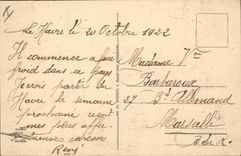 Le Havre le 20 Octobre 1922
Il commence a faire
froid dans ce pays
Je crois partir du
Havre la semaine
prochaine
mes plus affec
tueuses caresses
René
Madame Vve
Barbaroux
37 Bd Allemand
Marseille
B. du R.